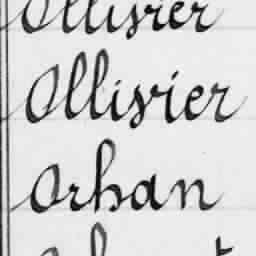 Ollivier
Ollivier
Orhan